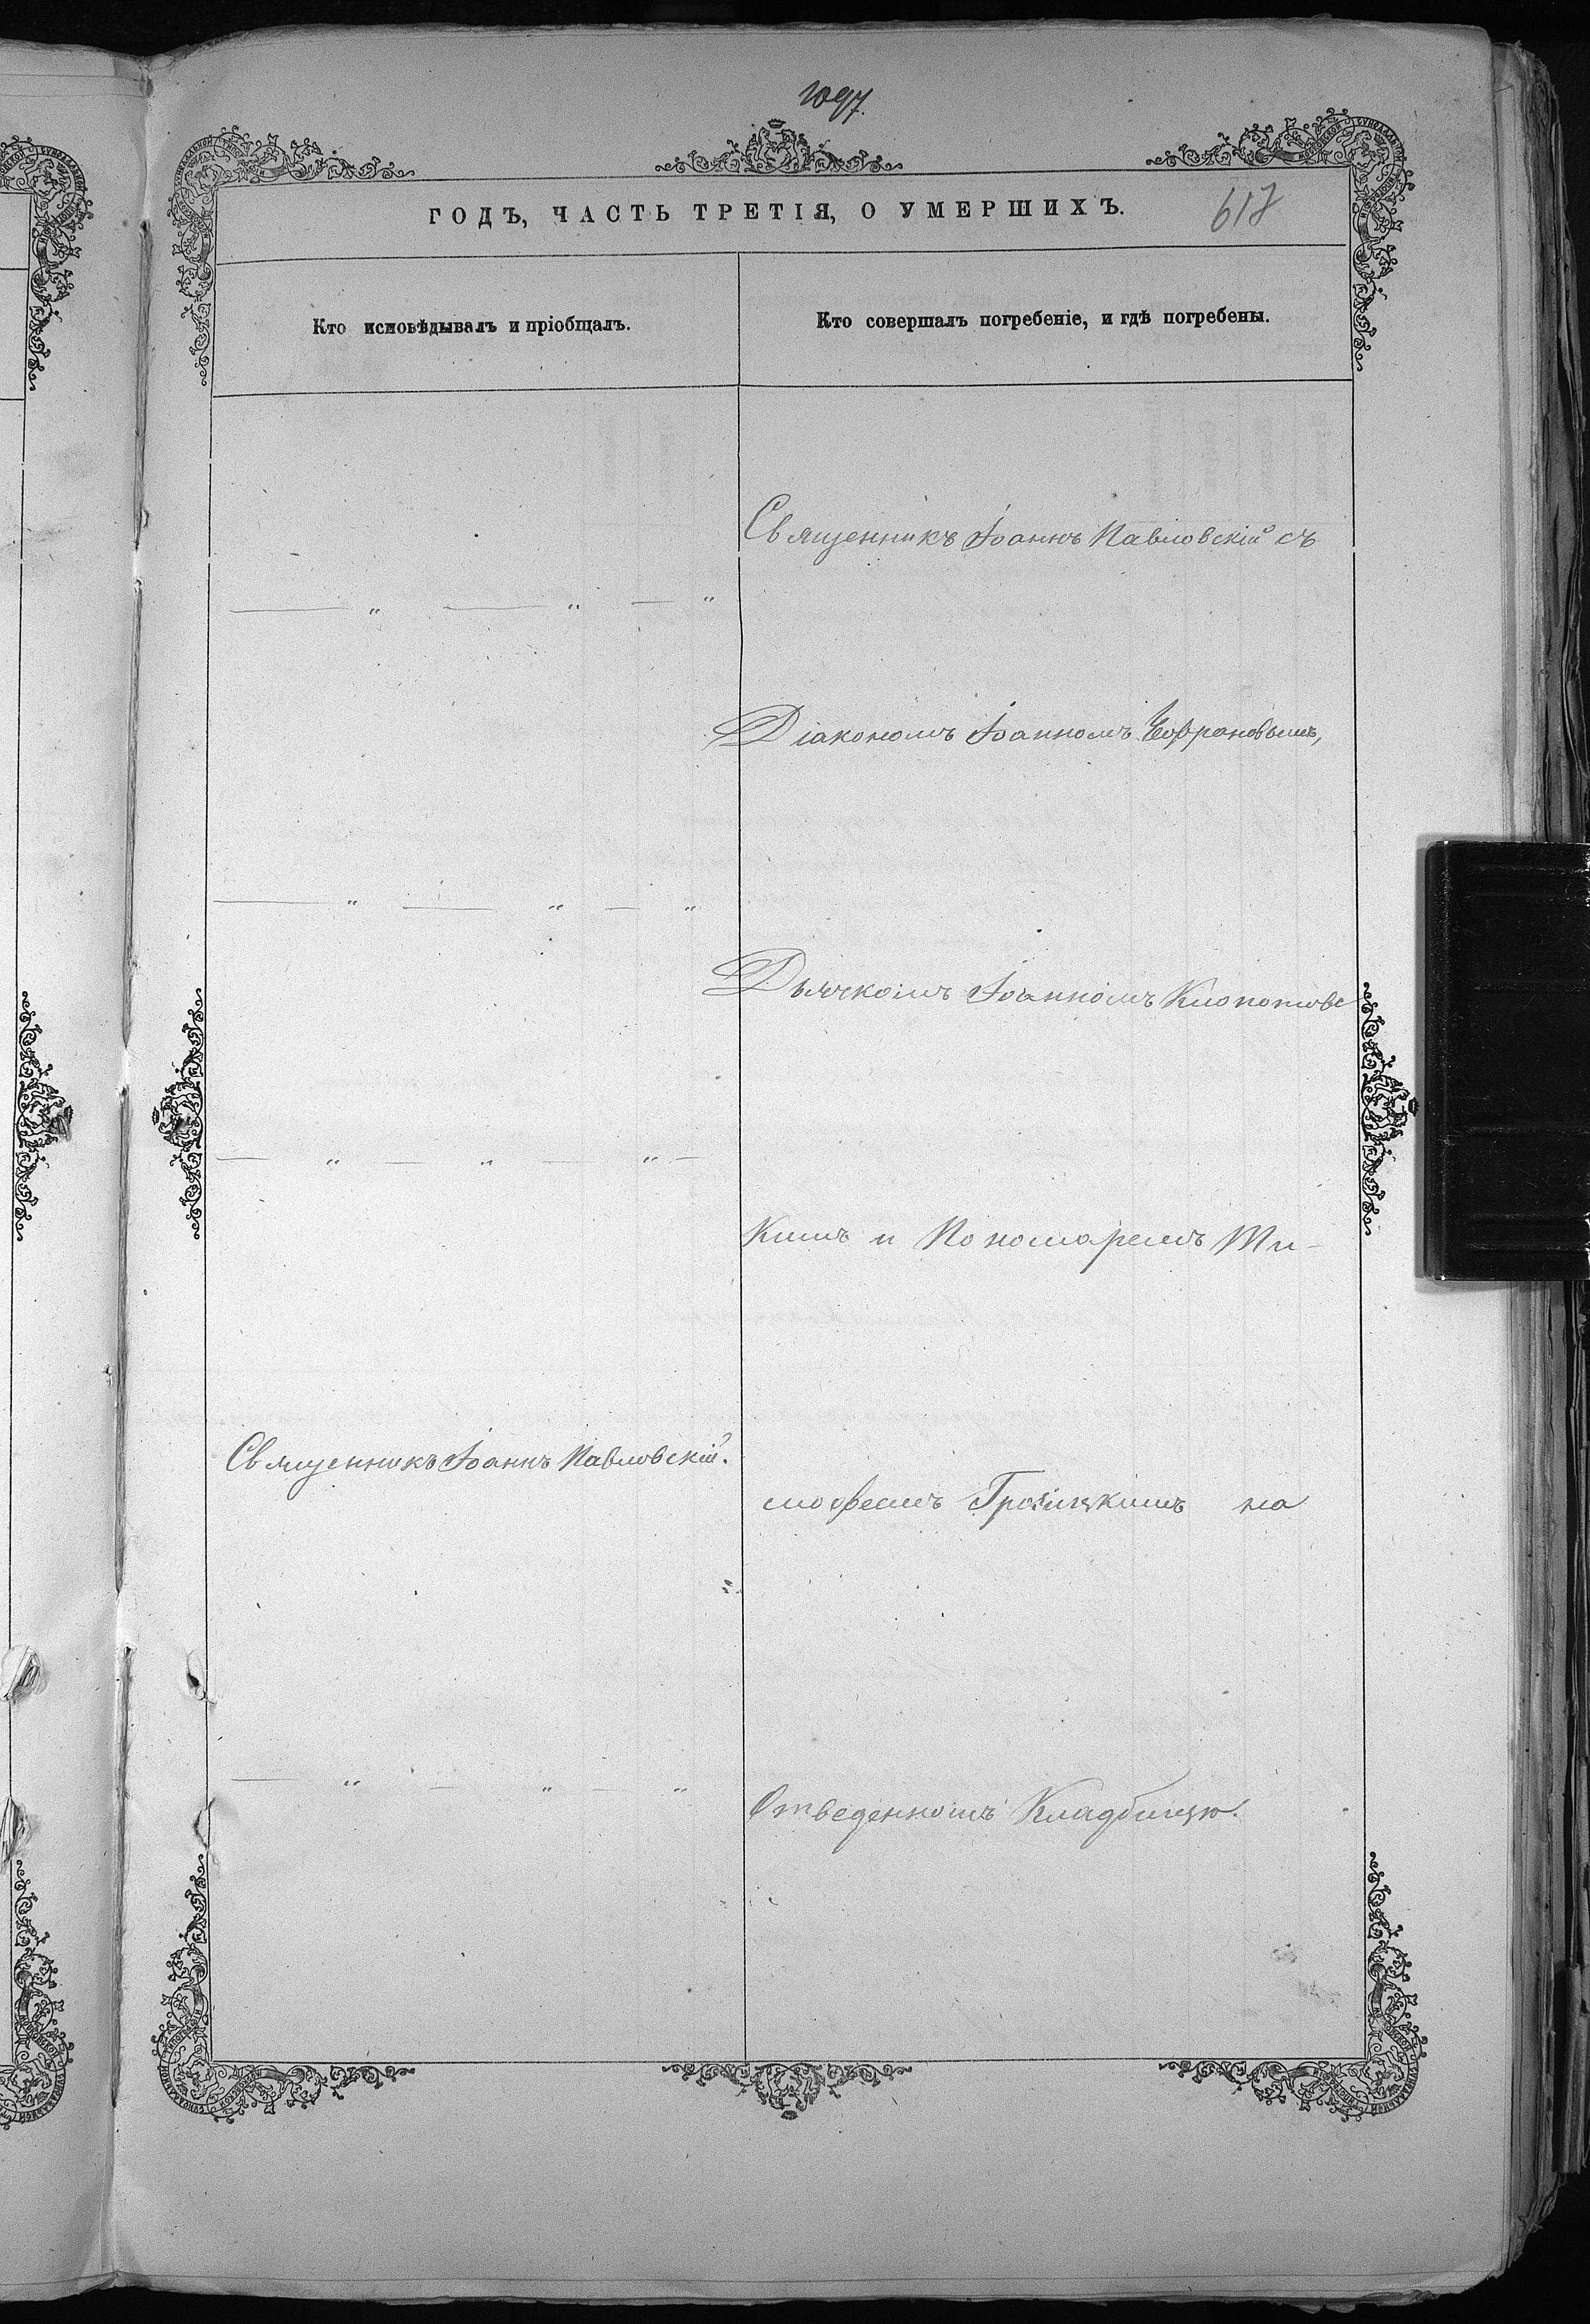 1097.
ГОДЪ, ЧАСТЬ ТРЕТІЯ, О УМЕРШИХЪ.
617
Кто исповѣдывалъ и пріобщалъ.
Кто совершалъ погребеніе, и гдѣ погребены.
Священникъ Іоаннъ Павловскій съ
— „ — „ — „
Діакономъ Іоанномъ
— „ — „ — „
Дьячкомъ Іоанномъ Клопотовс
— „ — „ — „ —
кимъ и Пономаремъ Ти-
Священникъ Іоаннъ Павловскій.
мофеемъ Троицкимъ на
— „ — „ — „
Отведенномъ Кладбищю.